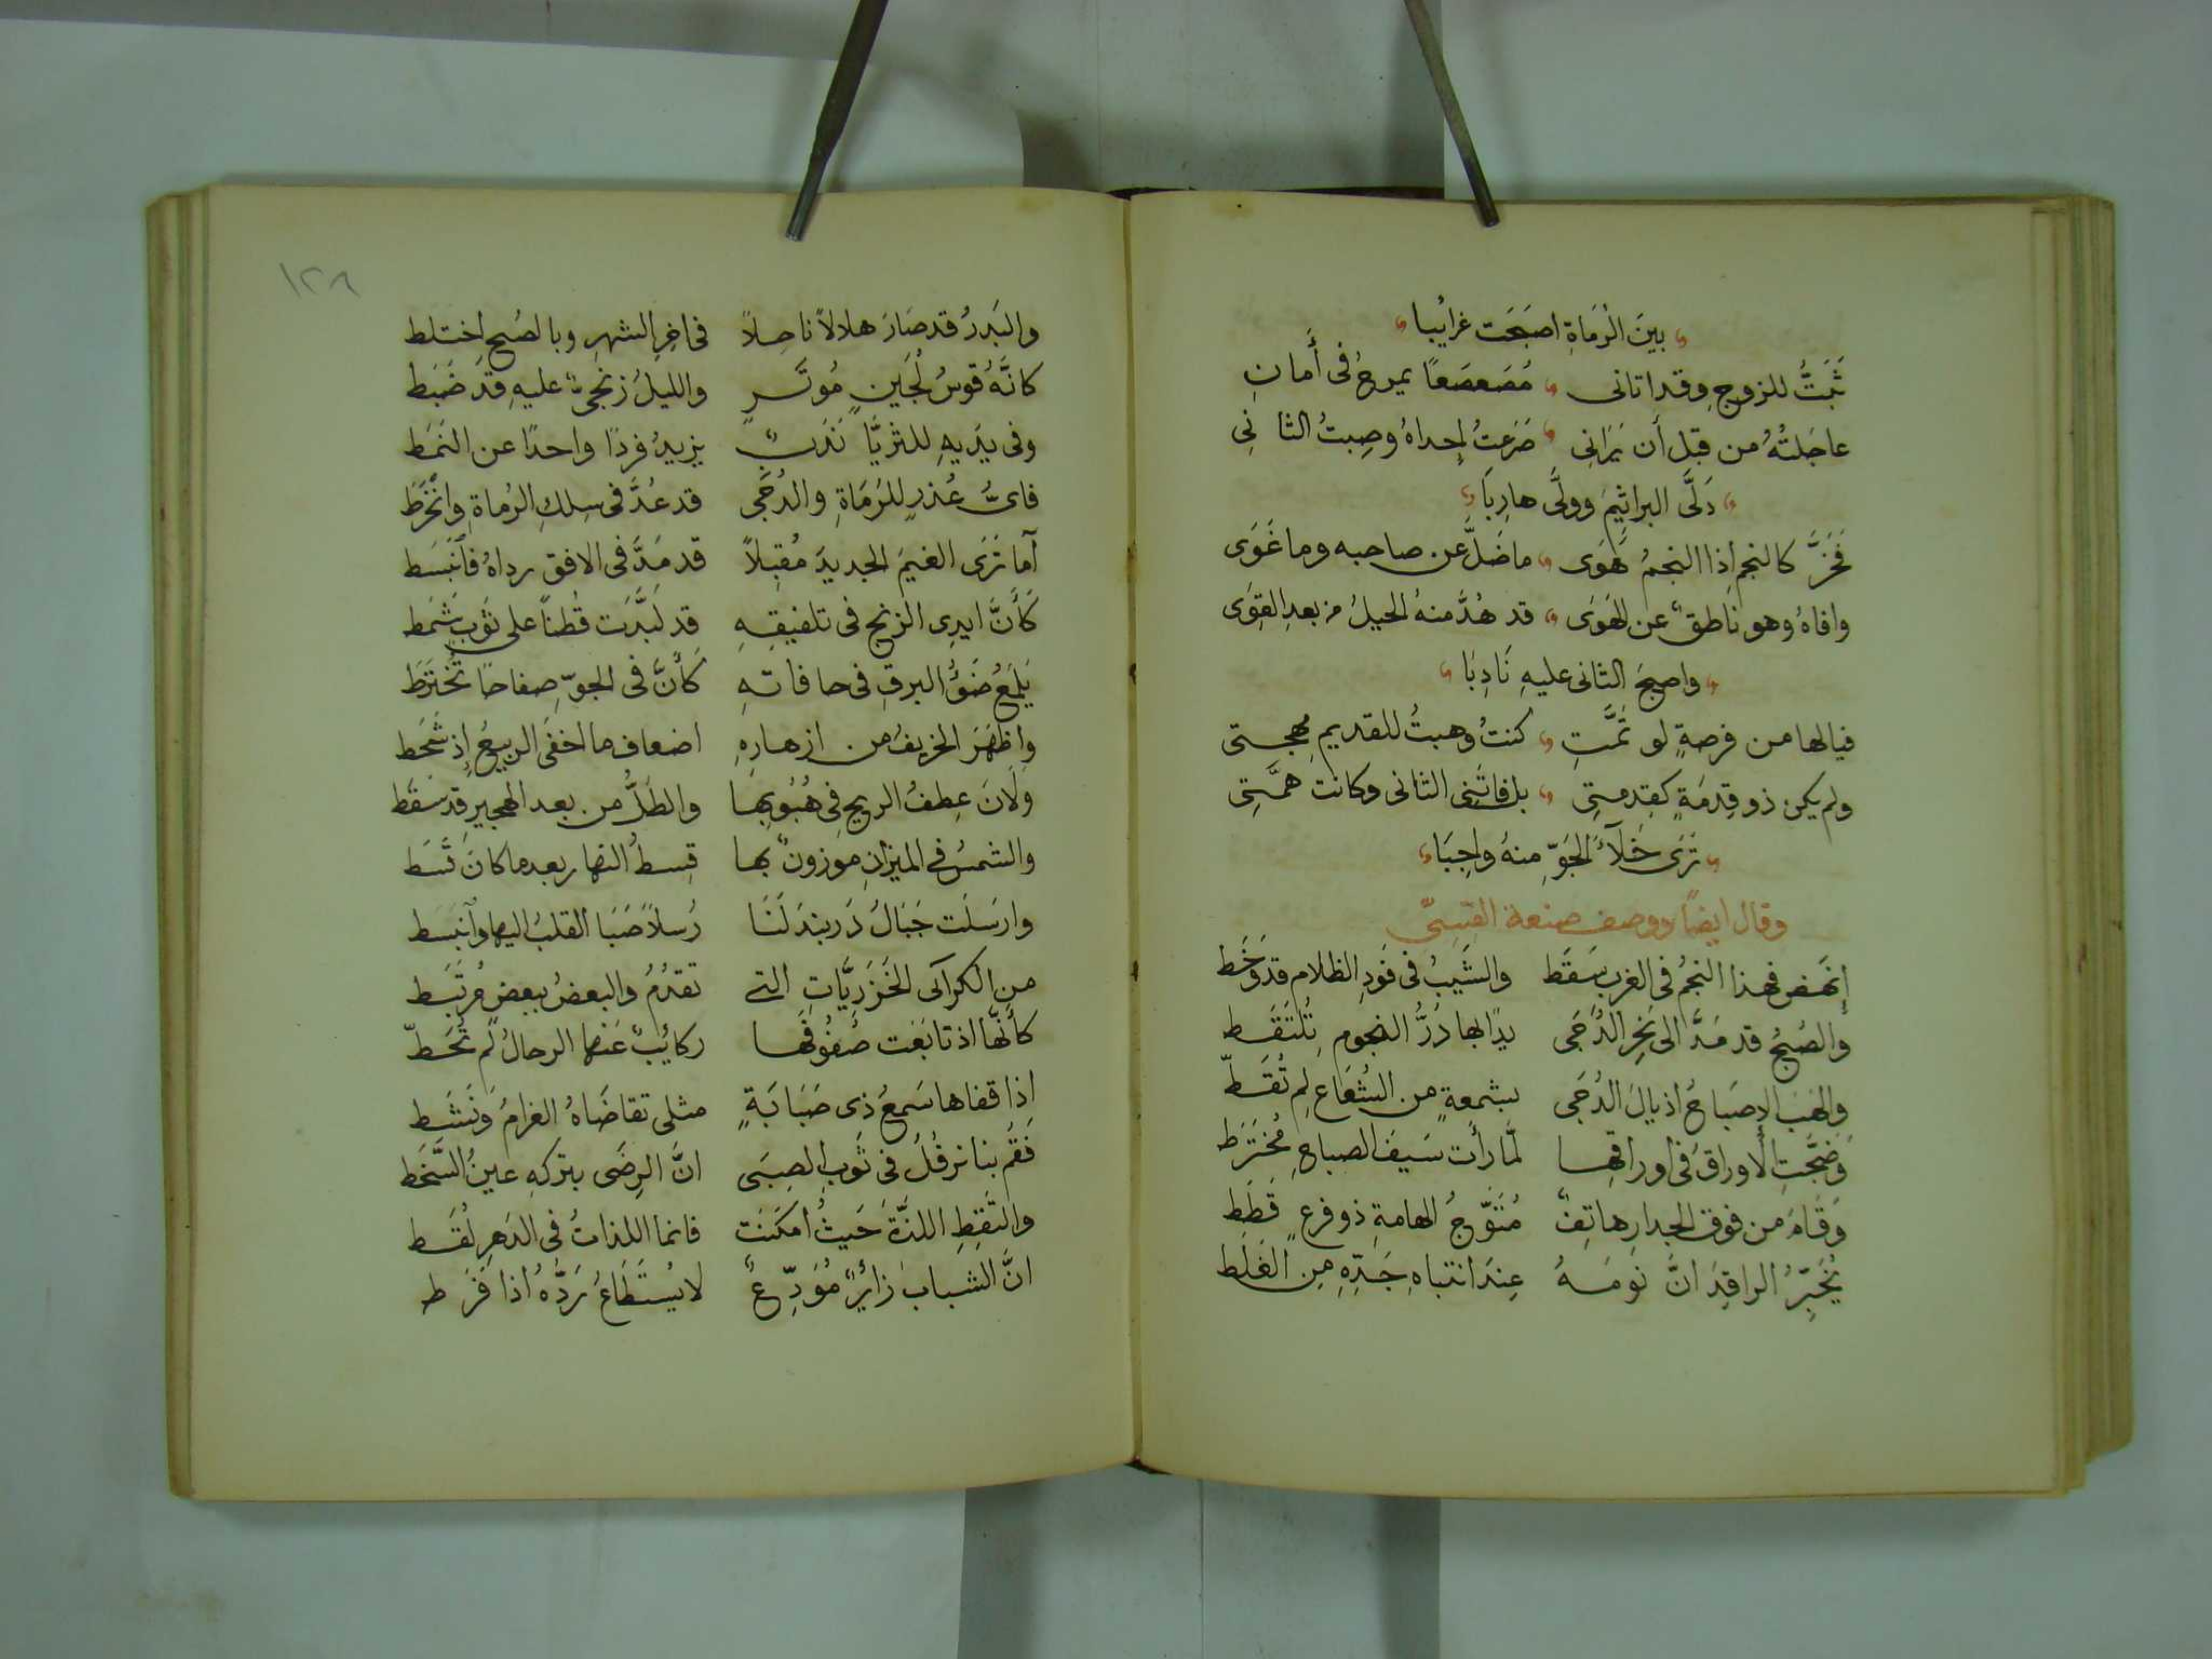 بينَ الرُمَاةِ اصبَحَت غرائبا
ثَبَتُّ للزوجِ وقد اتانى مُصَعصَعًا يمرحُ فى أمانِ
عاجَلتُهُ من قبل أن يَرَانِى صَرَعتُ إحداهُ وصِبتُ الثانِى
دَلَّى البراثِيمَ وولَّى هارِبَا
فَخَرَّ كالنجم إذا النجمُ هَوَى ماضَلَّ عن صاحبه وما غَوَى
وافاهُ وهو ناطقٌ عن الهَوَى قد هُدَّ منهُ الحيلُ من بعدِ القِوَى
واصبحَ الثانى عليهِ نَادِبَا
فيالها من فرصةٍ لو تمَّتِ كنتُ وهبتُ للقديمِ مهجتى
ولم يكن ذو قِدمَةٍ كقِدمتِى بل فاتَنِى الثانى وكانت همَّتِى
تَرَى خَلآءَ الجَوِّ منهُ واجِبَا
وقال ايضًا ووصف صنعة القِسِىّ
إنهَض فهذا النجمُ فى الغربِ سَقَط والشَيبُ فى فَودِ الظلام قد وَخَط
والصُبحُ قد مَدَّ الى نَحرِ الدُجَى يدًا بها دُرُّ النجومِ تُلتَقَط
والهَبَ الإصبَاحُ اذيالَ الدُجَى بشمعةٍ من الشُعَاعِ لم تُقَطّ
وَضَجَّتِ الأوراقُ فى اوراقِها لمَّا رأت سَيفَ الصباحِ مُختَرَط
وَقَامَ من فوق الجدارِ هاتِفٌ مُتَوَّجُ الهامةِ ذو فرعٍ قَطَط
يُخَبِّرُ الراقِدَ انَّ نومَهُ عِندَ انتباهِ جَدِّهِ مِن الغَلَط
١٢٨
والبَدرُ قد صَارَ هلالاً ناحِلاً فى اخِرِ الشهرِ وبالصُبحِ اختلط
كانَّهُ قوسُ لُجَينٍ مُوتَرٍ والليلُ زنجىٌّ عليهِ قد ضَبَط
وفى يدَيهِ للثرَيَّا نَدَبٌ يزيدُ فردًا واحدًا عن النَمَط
فاىُّ عُذرٍ للرُمَاةِ والدُجَى قد عُدَّ فى سِلكِ الرُماةِ وانخَرَط
أما تَرَى الغيمَ الجديدَ مُقبلاً قد مَدَّ فى الافق رداهُ فانبَسَط
كَأنَّ ايدِى الزنج فى تلفيقِهِ قد لَبَّدَت قُطناً على ثَوبٍ شَمَط
يَلمَعُ ضَوُّ البرقِ فى حافاتهِ كَأنَّ فى الجوِّ صِفاحًا تُختَرَط
واظهَرَ الخريفُ من ازهارِهِ اضعاف ما اخفَى الربيعُ إذ شَحَط
ولَانَ عِطفُ الريحِ فى هُبُوبِها والطَلُّ من بعد الهجيرِ قد سَقَط
والشمسُ فى الميزانِ موزونٌ بها قِسطُ النهار بعدما كانَ قَسَط
وارسَلَت جَبَالُ دَربندَ لَنَا رُسلاً صَبَا القلبُ اليها وانبَسَط
من الكراكى الخَزَريَّاتِ التى تقدُمُ والبعضُ ببعضٍ مُرتَبَط
كأنَّها اذ تابَعَت صُفُوفَها ركائبٌ عَنها الرحالُ لم تُحَطّ
إذا قفاها سَمعُ ذى صَبَابَةٍ مثلى تقاضَاهُ الغرامُ ونَشَط
فَقُم بنا نرفُلُ فى ثَوبِ الصِبَى انَّ الرِضَى بتركِهِ عينُ السَّخَط
والتَقِطِ اللذَّةَ حَيثُ أمكَنَت فانما اللذاتُ فى الدَهرِ لُقَط
انَّ الشبابَ زائرٌ مُوَدِّعٌ لا يُستَطَاعُ رَدُّهُ اذا فَرَط